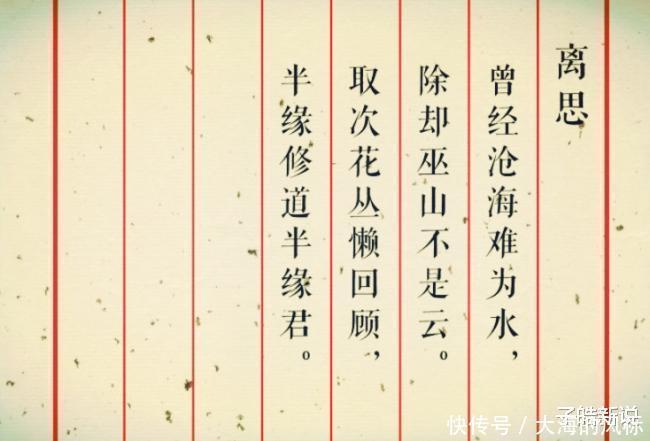 离思
曾经沧海难为水，
除却巫山不是云。
取次花丛懒回顾，
半缘修道半缘君。
快传号／大海的风标
子皓新说